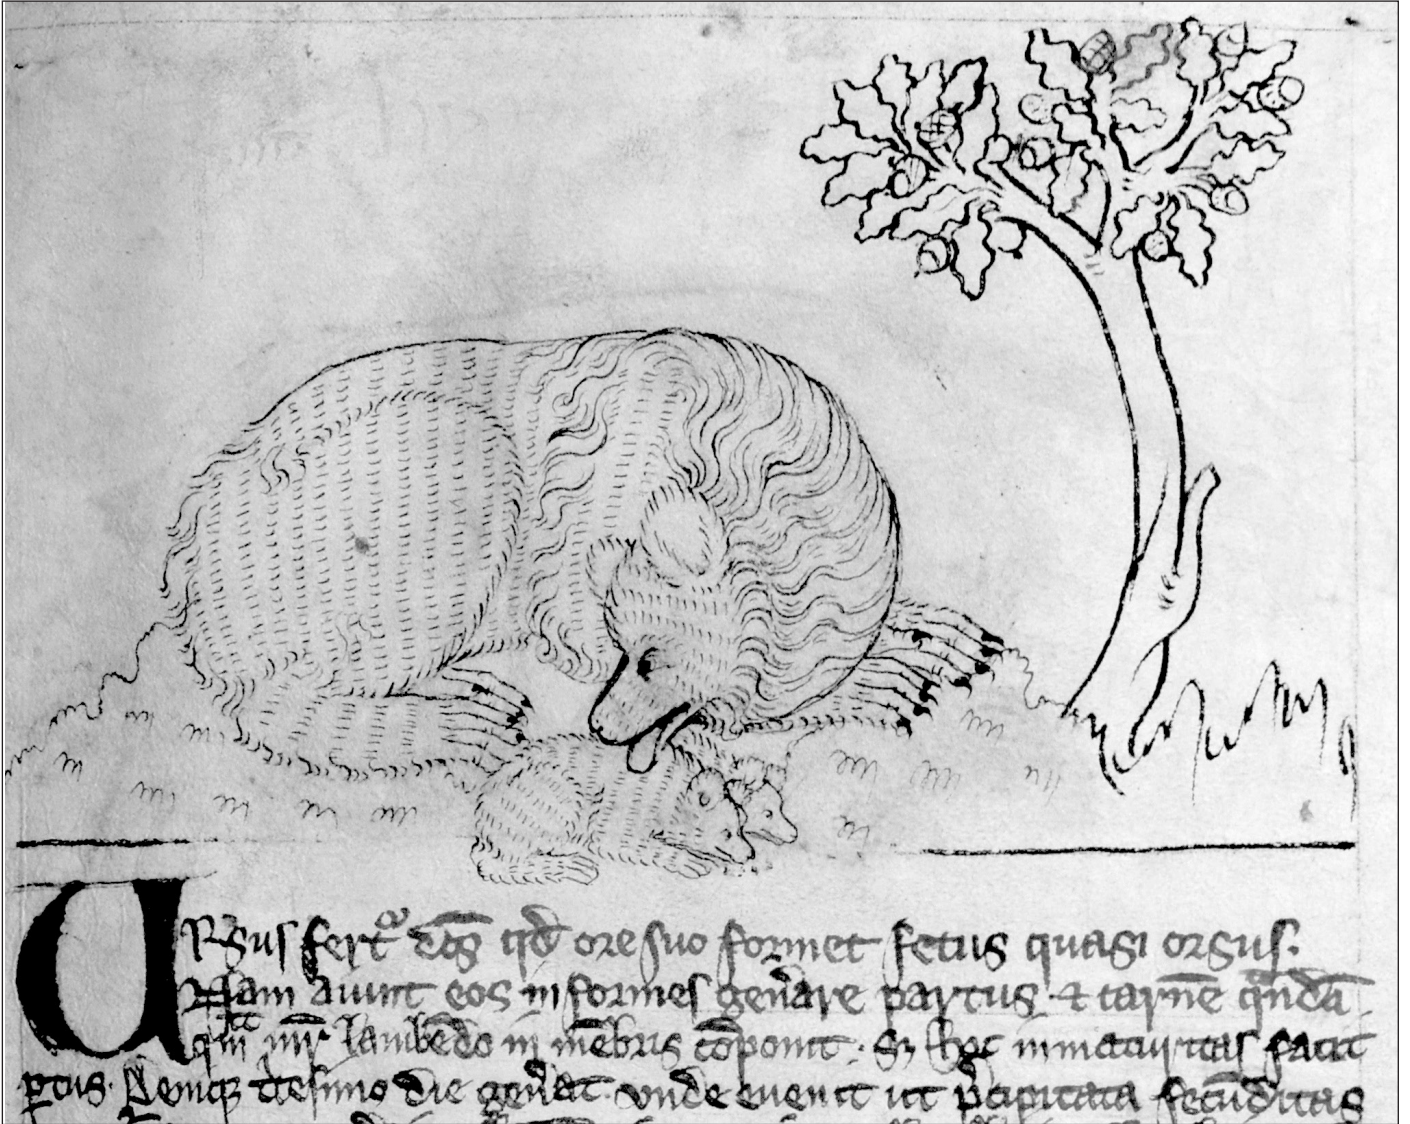 Ursus fert͛ dc̄s qd̄ ore suo formet fetus quasi orsus.
Nam aiunt eos informes gen̄are partus ⁊ carnē qndā
qm̄ mr̄ lambēdo in mēbris cōponit. S; hoc inmaturitas facit
ptus. Deniq; tͥcesimo die gen̄at. vnde euenit ut p̄cipitata fecūditas